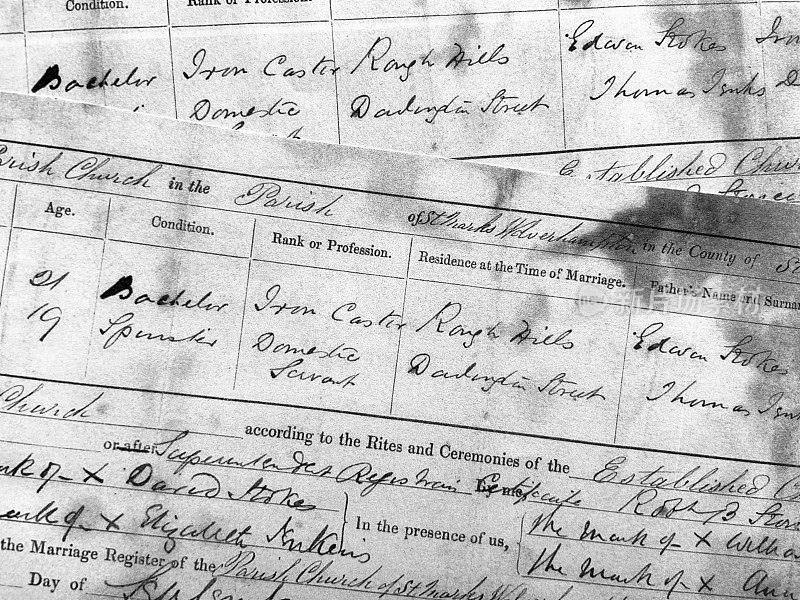 Condition. Rank or Profession.
Bachelor Iron Castor Rough Hills Edwin Stokes Iron
Domestic Dadington Street Thomas Jenks
Established Church
Parish Church in the Parish of St Marks Wolverhampton in the County of St
Age. Condition. Rank or Profession. Residence at the Time of Marriage. Father's Name and Surna
21 Bachelor Iron Castor Rough Hills Edwin Stokes
19 Spinster Domestic Servant Dadington Street Thomas Jenk
Church according to the Rites and Ceremonies of the Established Ch
or after Superintendent Registrars Certificate
mark of X David Stokes In the presence of us, the mark of X Willia
mark of X Elizabeth Jenkins the mark of X Ann
the Marriage Register of the Parish Church of St Marks
Day of